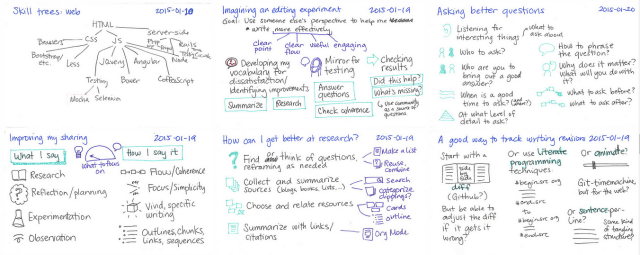 Skill trees: web 2015-01-18
HTML
CSS JS server-side
Browsers
Bootstrap/etc.
Less
JQuery
Angular
Node
Rails
Testing
Bower
CoffeeScript
Mocha Selenium
Imagining an editing experiment 2015-01-19
Goal: Use someone else's perspective to help me
write more effectively
clear point
clear flow
useful
engaging
Developing my vocabulary for dissatisfaction/identifying improvements
Summarize
Research
Mirror for testing
Answer questions
Check coherence
checking results?
Did this help?
What's missing?
Use community as a source of questions
Asking better questions 2015-01-20
Listening for interesting things
What to ask about
Who to ask?
Who are you to bring out a good answer?
When is a good time to ask?
At what level of detail to ask?
How to phrase the question?
Why does it matter? What will you do with it?
what to ask before?
what to ask after?
Improving my sharing 2015-01-19
What I say
what to focus on
How I say it
Research
Reflection/planning
Experimentation
Observation
Flow/Coherence
Focus/Simplicity
Vivid, specific writing
Outlines, chunks, links, sequences
How can I get better at research? 2015-01-19
Find or think of questions, reframing as needed
Make a list
Reuse, combine
Collect and summarize sources (blogs, books, lists,...)
Search
categorize clippings?
Choose and relate resources
Cards
outline
Summarize with links/citations
Org Mode
A good way to track writing revisions 2015-01-19
Start with a
side side
diff
(Github?)
But be able to adjust the diff if it gets it wrong
Or use literate programming techniques:
#+begin_src org
#+end_src
To
#+begin_src org
#+end_src
Or animate?
Git-timemachine, but for the web?
Or sentence-per-line?
Same kind of
structure?